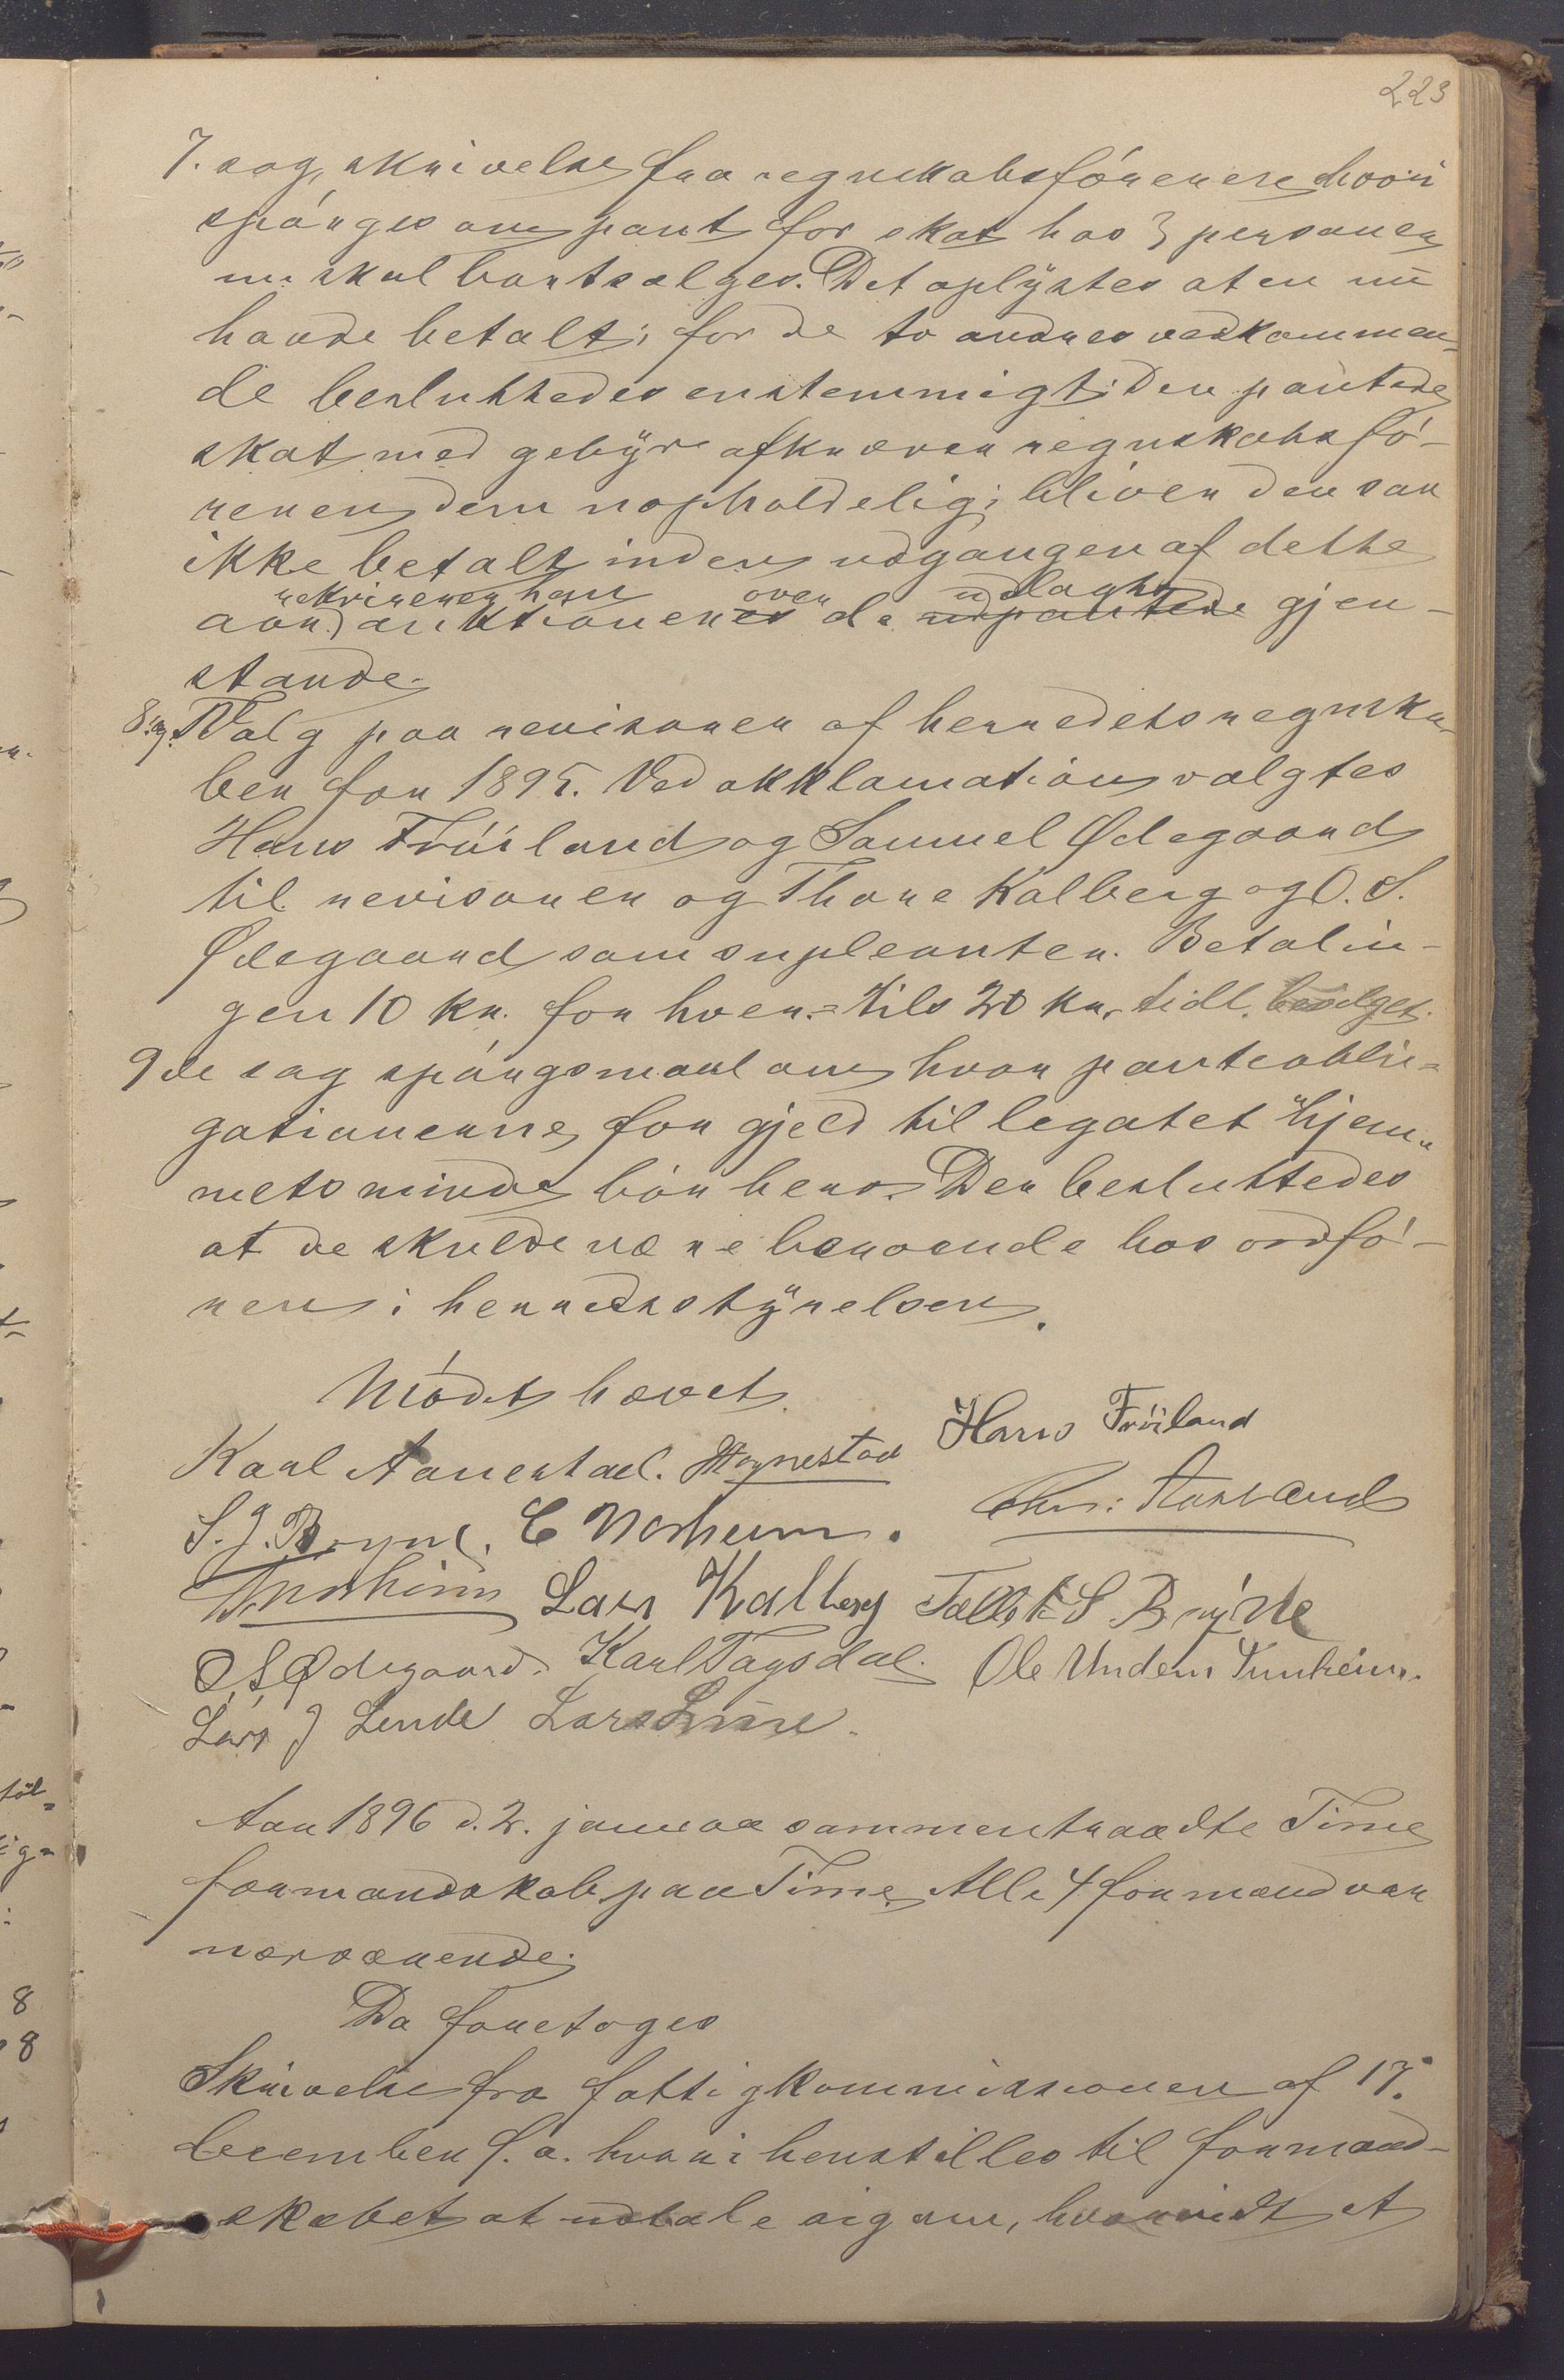 223
7. sag, skrivelse fra regnskabsföreren hvori
spörges om pant for skat hos 3 personer
nu skal bortsælges. Det oplystes at en nu
havde betalt; for de to andres vedkommen-
de besluttedes enstemmigt: Den pantede
skat med gebyr afkræver regnskabsfö-
reren dem uopholdelig; bliver den saa
ikke betalt inden udgangen af dette
rekvirerer han over udlagte
aar, auktioneres de udpantede gjen-
stande.
8. sag. Valg paa revisorer af herredets regnska-
ber for 1895. Ved akklamation valgtes
Hans Fröiland og Samuel Ødegaard
til revisorer og Thore Kalberg og O. S.
Ødegaard som supleanter. Betalin-
gen 10 kr. for hver. = tils 20 kr. tidl.
9de sag spörgsmaal om hvor panteobli-
gationerne for gjeld til legatet "Hjem-
mets minde" bör bero. Der besluttedes
at de skulde være beroende hos ordfö-
reren i herredsstyrelsen.
Mödet hævet.
Karl Aanestad. Hognestad Hans Fröiland
S. J. Bryne. E Norheim. Chr: Aarland
Norheim Lars Kalberg Tallak S Bryne
O. S. Ødegaard. Karl Tagsdal. Ole Undem Tunheim.
Lars J Lende Lars Lima.
Aar 1896 d. 2. januar sammentraadte Time
formandskab paa Time. Alle 4 formænd var
nærværende.
Da foretoges
Skrivelse fra fattigkommissionen af 17.
december f. a. hvori henstilles til formand-
skabet at udtale sig om, hvorvidt et